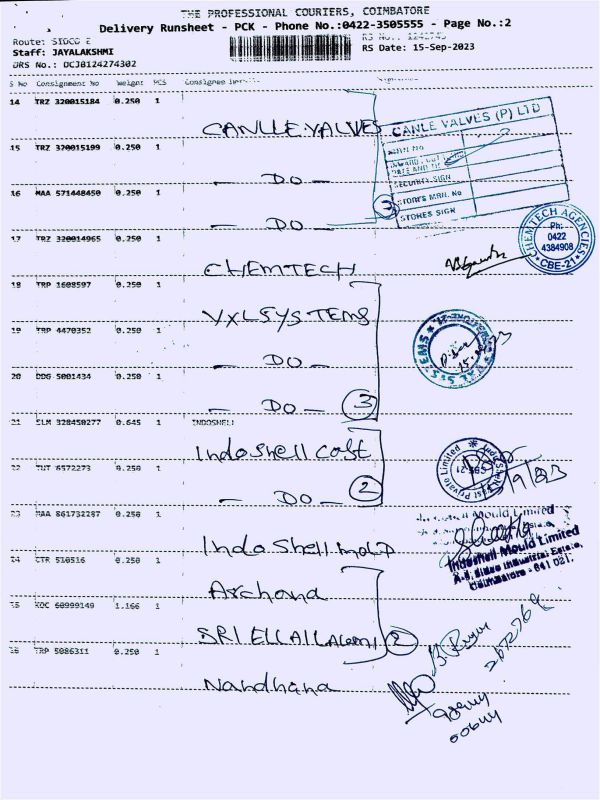 THE PROFESSIONAL COURIERS, COIMBATORE
Delivery Runsheet - PCK - Phone No.:0422-3505555 - Page No.:2
Route: SIDCO E
Staff: JAYALAKSHMI
RS Date: 15-Sep-2023
DRS No.: DCJB124274302
S No Consignment No Weight PCS Consignee
14 TRZ 320015184 0.250 1
CANLLE VALVES
CANLE VALVES (P) LTD
15 TRZ 320015199 0.250 1
- DO -
SECURITY SIGN
16 MAA 571448450 0.250 1
STORES SIGN
- DO -
3
17 TRZ 320014965 0.250 1
CHEMTECH
CHEMTECH AGENCIES
Ph:
0422
4384908
CBE-21
18 TRP 1608597 0.250 1
VXL SYSTEMS
19 TRP 4470352 0.250 1
- DO -
20 DDG 5001434 0.250 1
- DO - 3
21 SLM 328450277 0.645 1 INDOSHELL
Indoshell cast
22 TUT 6572273 0.250 1
- DO - 2
23 MAA 861732287 0.250 1
Indo Shell mould
Indoshell Mould Limited
A-9, Sidco Industrial Estate,
Coimbatore - 641 021.
24 CTR 510516 0.250 1
Archana
25 KOC 60999149 1.166 1
2
26 TRP 5086311 0.250 1
Nandhana